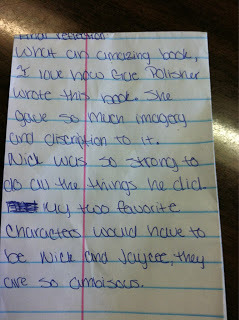 Final reflection
What an amazing book,
I love how Gae Polisner
wrote this book. She
gave so much imagery
and discription to it.
Nick was so strong to
do all the things he did.
My two favorite
characters would have to
be Nick and Jaycee, they
are so